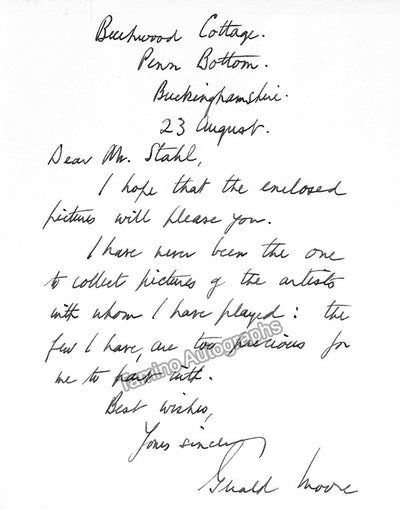 Beechwood Cottage.
Penn Bottom.
Buckinghamshire.
23 August.
Dear Mr. Stahl,
I hope that the enclosed
pictures will please you.
I have never been the one
to collect pictures of the artists
with whom I have played: the
few I have, are too precious for
me to part with.
Tamino Autographs
Best wishes,
Yours sincerely
Gerald Moore